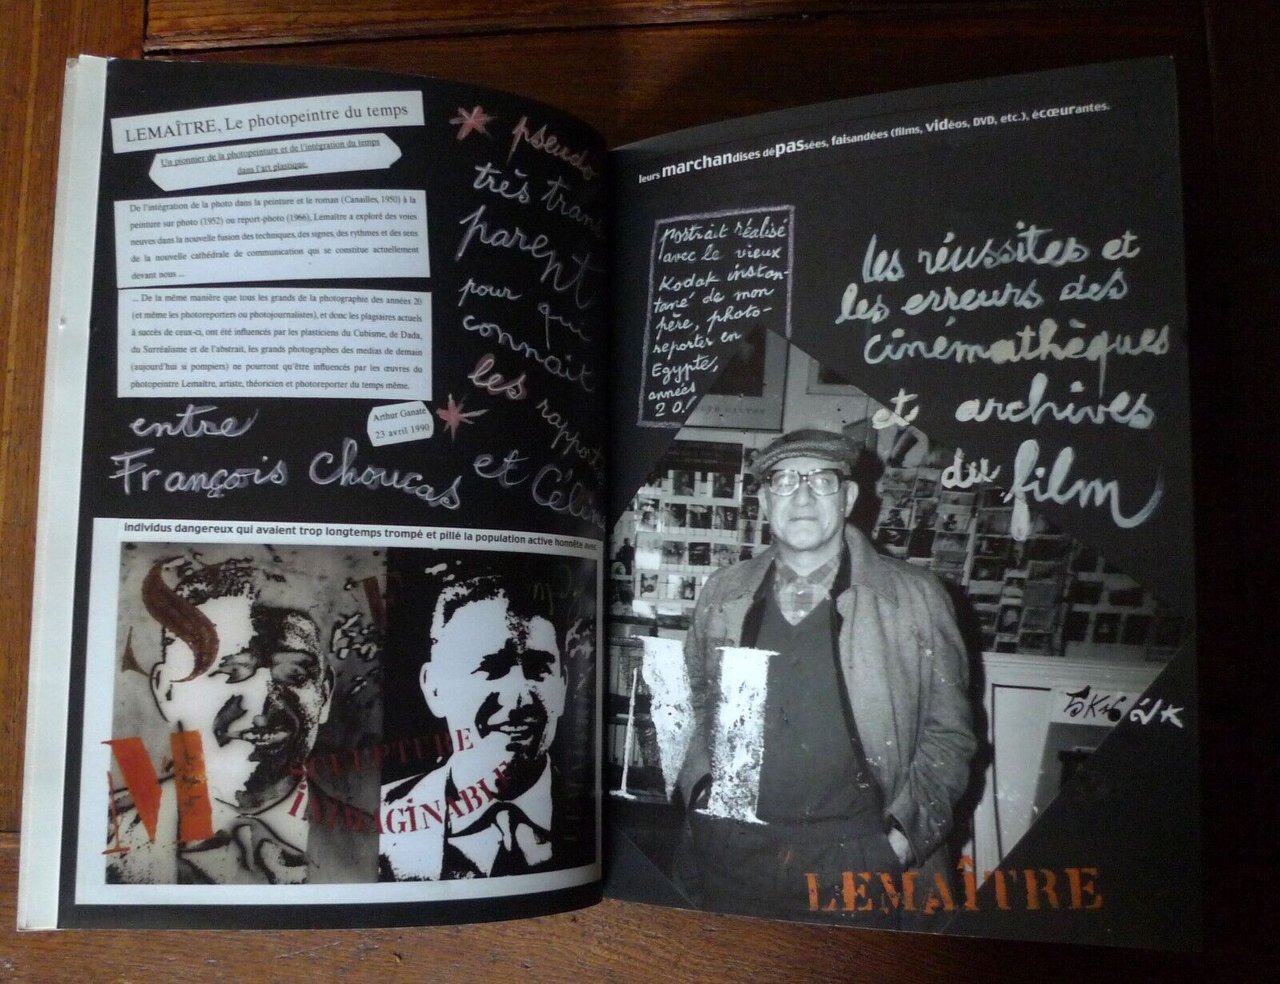 LEMAÎTRE, Le photopeintre du temps
Un pionnier de la photopeinture et de l'intégration du temps
dans l'art plastique.
De l'intégration de la photo dans la peinture et le roman (Canailles, 1950) à la
peinture sur photo (1952) ou report-photo (1966), Lemaître a exploré des voies
neuves dans la nouvelle fusion des techniques, des signes, des rythmes et des sens
de la nouvelle cathédrale de communication qui se constitue actuellement
devant nous ...
... De la même manière que tous les grands de la photographie des années 20
(et même les photoreporters ou photojournalistes), et donc les plagiaires actuels
à succès de ceux-ci, ont été influencés par les plasticiens du Cubisme, de Dada,
du Surréalisme et de l'abstrait, les grands photographes des medias de demain
(aujourd'hui si pompiers) ne pourront qu'être influencés par les œuvres du
photopeintre Lemaître, artiste, théoricien et photoreporter du temps même.
Arthur Ganate
23 avril 1990
* pseudo
très trans
parent
pour qui
connait
les rapports
entre
François Choucas * et Céline
individus dangereux qui avaient trop longtemps trompé et pillé la population active honnête avec
S
M
SCULPTURE
iMMAGiNABLE
leurs marchandises dépassées, faisandées (films, vidéos, DVD, etc.), écœurantes.
portrait réalisé
avec le vieux
Kodak instan-
tané de mon
père, photo-
reporter en
Egypte,
années
20.!
les réussites et
les erreurs des
cinémathèques
et archives
du film
M
LEMAÎTRE